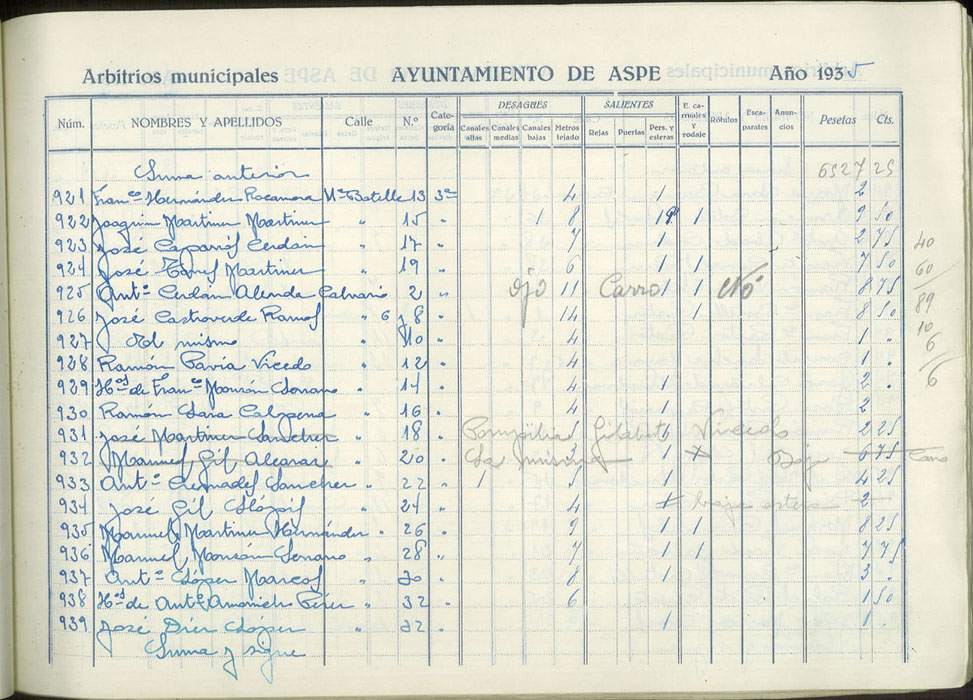 Arbitrios municipales AYUNTAMIENTO DE ASPE Año 1935
Núm. NOMBRES Y APELLIDOS Calle N.º Categoría DESAGÜES Canales altas Canales medias Canales bajas Metros tejado SALIENTES Rejas Puertas Pers. y esteras E. carruales y rodaje Rótulos Escaparates Anuncios Pesetas Cts.
Suma anterior 6527 25
921 Franco Hernández Rocamora Mª Botella 13 3ª 4 1 2
922 Joaquin Martinez Martinez " 15 " 1 8 1 1 9 50
923 José Caparrós Cerdán " 17 " 7 1 2 75
924 José Martinez " 19 " 6 1 1 7 50
925 Antº Cerdán Alenda Calvario 2 " ojo 11 Carro 1 1 No 8 75
926 José Castroverde Ramos " 6 y 8 " 14 1 8 50
927 El mismo " 10 " 4 1 "
928 Ramón Pavía Vicedo " 12 " 4 1 "
929 Hos de Franco Monzón Soriano " 14 " 4 1 2 "
930 Ramón Lara Calpena " 16 " 4 1 2
931 José Martinez Sanchez " 18 " 5 Gilabert 1 Vicedo 2 25
932 Manuel Gil Alcaraz " 20 " La misma 3 1 x Baja 6 75
933 Antº Cremades Sanchez " 22 " 1 5 1 4 25
934 José Gil López " 24 " 4 1 baja estera 2
935 Manuel Martinez Hernández " 26 " 9 1 1 8 25
936 Manuel Monzón Soriano " 28 " 7 1 1 7 75
937 Antº López Marcos " 30 " 8 1 3 "
938 Hos de Antº Perez " 32 " 6 1 50
939 José Diez López " 32 " 1 1 "
Suma y sigue
40
60
89
10
6
6